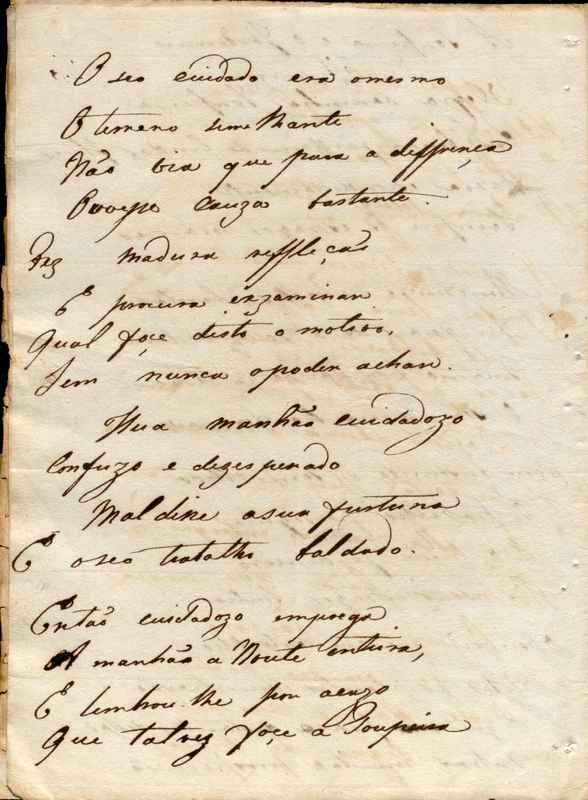 O seo cuidado era omesmo
O terreno simelhante
Não via que para a diffrença
Ovvesse cauza bastante.
Fez madura refflecção
E procura exzaminar
Qual foçe disto o motivo,
Sem nunca o poder achar.
Hua manhão cuidadozo
Confuzo e dezesperado
Maldice a sua furtuna
E o seo trabalho baldado.
Então cuidadozo emprega
A manhão a Noute enteira,
E lembrou-lhe por acazo
Que talvez foçe a Toupeira